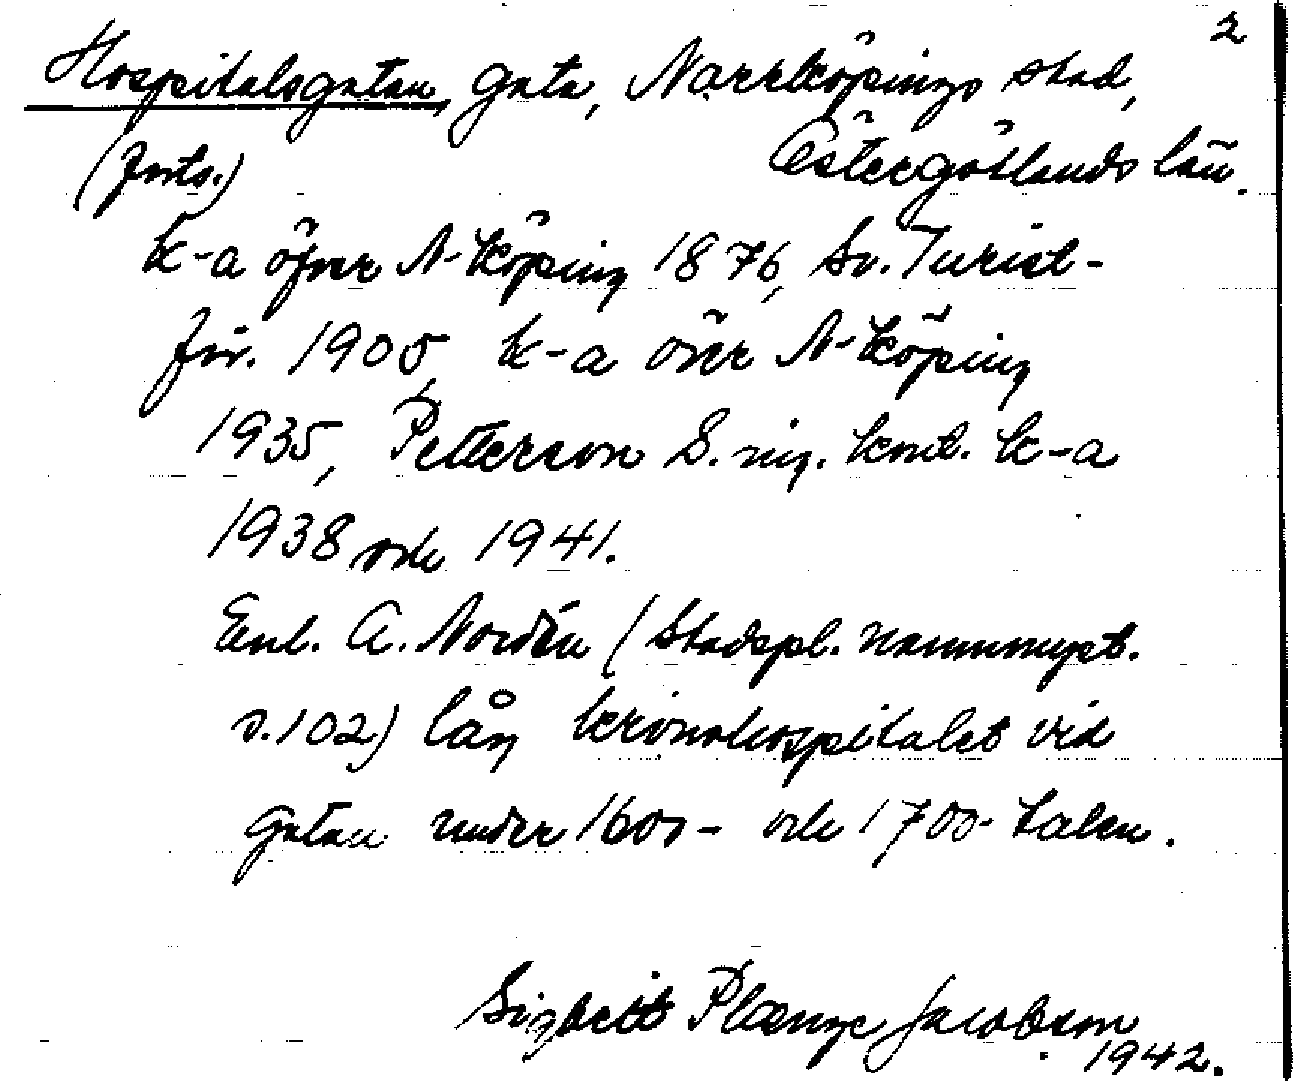 2
Hospitalsgatan, gata, Norrköpings stad,
(forts.) Östergötlands län.
k-a öfver N-köping 1876, Sv. Turist-
för. 1905, k-a över N-köping
1935, Petterson S. nig. kond. k-a
1938 och 1941.
Enl. A. Nordén (Stadspl. namnmyst.
s.102) låg kronohospitalet vid
gatan under 1600- och 1700-talen.
Sigbritt Plænge Jacobson
1942.